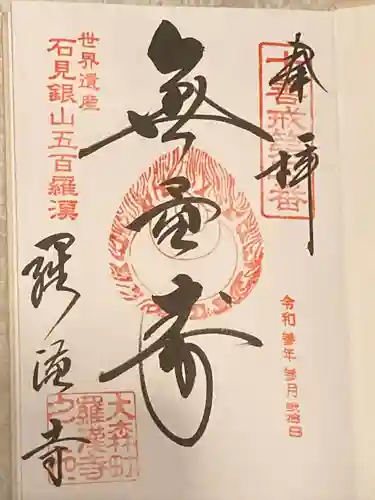 奉拝
令和参年参月弐拾日
無量寿
世界遺産
石見銀山五百羅漢
羅漢寺
大森町
羅漢寺
之印